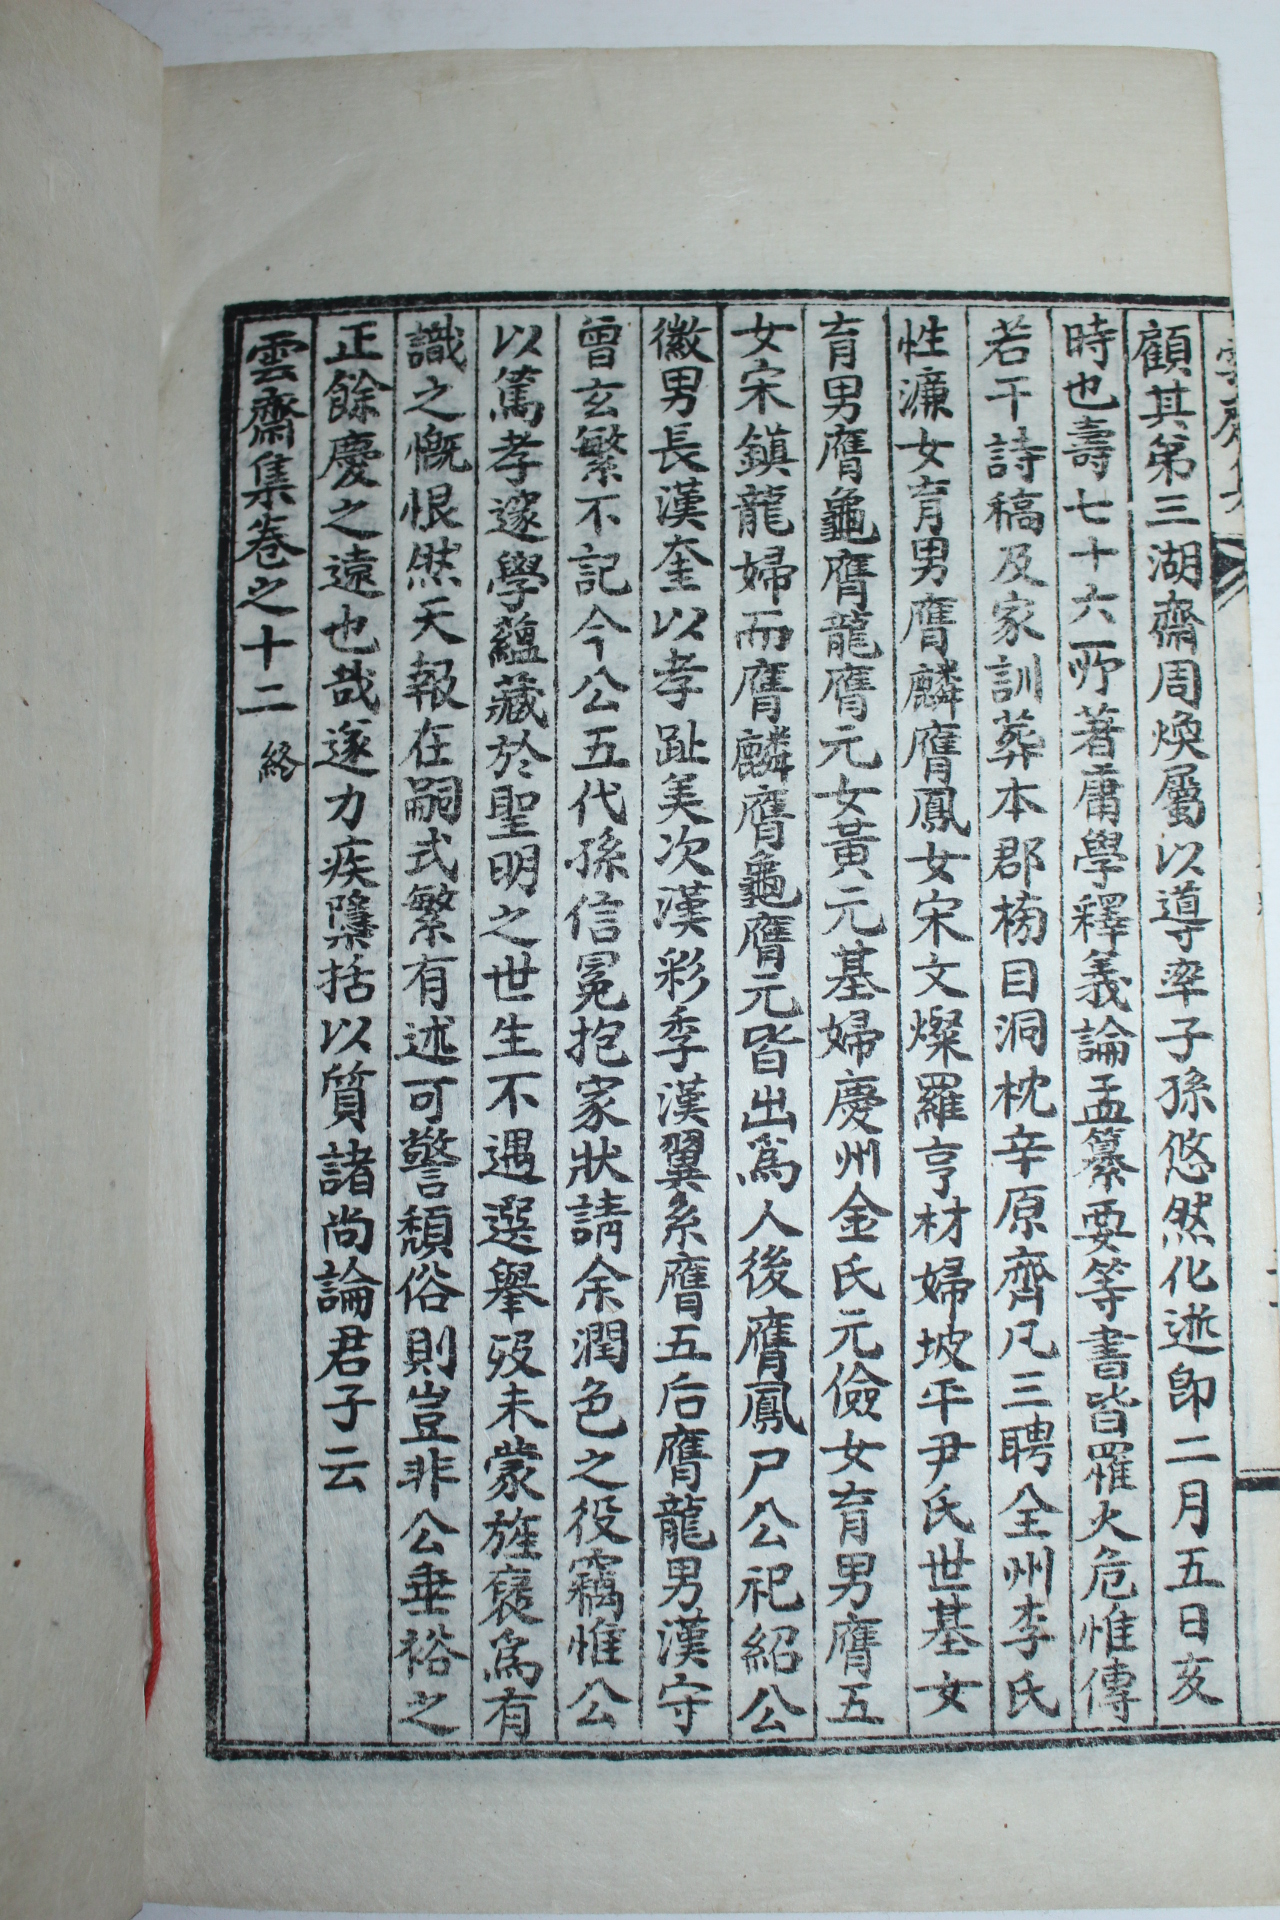 顧其第三湖齋周煥屬以導率子孫悠然化逝卽二月五日亥
時也壽七十六所著庸學釋義論孟纂要等書皆罹火危惟傳
若干詩稿及家訓葬本郡栯目洞枕辛原齊凡三聘全州李氏
性濂女育男膺麟膺鳳女宋文燦羅亨材婦坡平尹氏世基女
育男膺龜膺龍膺元女黃元基婦慶州金氏元儉女育男膺五
女宋鎭龍婦而膺麟膺龜膺元皆出爲人後膺鳳尸公祀紹公
徽男長漢奎以孝趾美次漢彩季漢翼系膺五后膺龍男漢守
曾玄繁不記今公五代孫信冕抱家狀請余潤色之役竊惟公
以篤孝邃學蘊藏於聖明之世生不遇選擧歿未蒙旌褒爲有
識之慨恨然天報在嗣式繁有述可警頹俗則豈非公垂裕之
正餘慶之遠也哉遂力疾檃括以質諸尙論君子云
雲齋集卷之十二 終